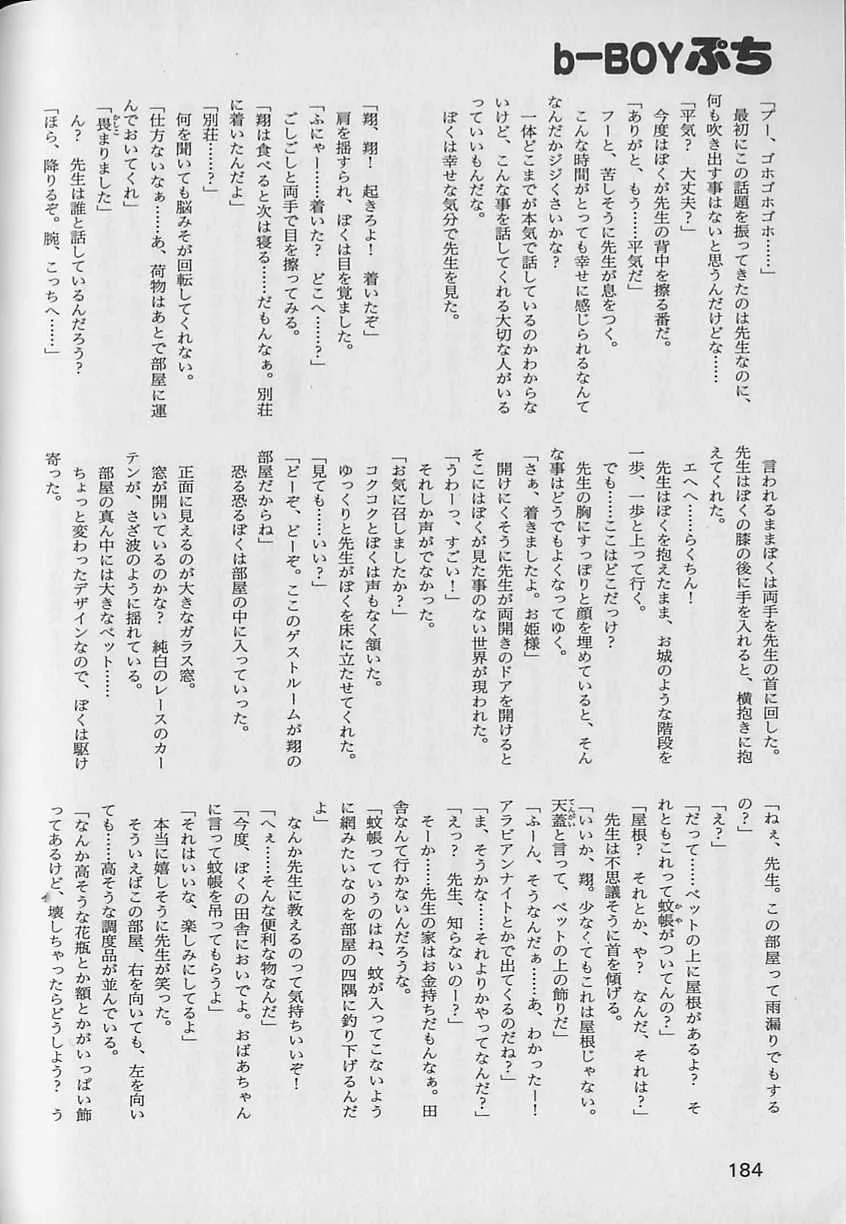 b-BOYぷち
「プー、ゴホゴホゴホ……」
最初にこの話題を振ってきたのは先生なのに、
何も吹き出す事はないと思うんだけどな……
「平気？　大丈夫？」
今度はぼくが先生の背中を擦る番だ。
「ありがと、もう……平気だ」
フーと、苦しそうに先生が息をつく。
こんな時間がとっても幸せに感じられるなんて
なんだかジジくさいかな？
一体どこまでが本気で話しているのかわからな
いけど、こんな事を話してくれる大切な人がいる
っていいもんだな。
ぼくは幸せな気分で先生を見た。
「翔、翔！　起きろよ！　着いたぞ」
肩を揺すられ、ぼくは目を覚ました。
「ふにゃー……着いた？　どこへ……？」
ごしごしと両手で目を擦ってみる。
「翔は食べると次は寝る……だもんなぁ。別荘
に着いたんだよ」
「別荘……？」
何を聞いても脳みそが回転してくれない。
「仕方ないなぁ……あ、荷物はあとで部屋に運
んでおいてくれ」
「畏まりました」
ん？　先生は誰と話しているんだろう？
「ほら、降りるぞ。腕、こっちへ……」
言われるままぼくは両手を先生の首に回した。
先生はぼくの膝の後に手を入れると、横抱きに抱
えてくれた。
エヘヘ……らくちん！
先生はぼくを抱えたまま、お城のような階段を
一歩、一歩と上って行く。
でも……ここはどこだっけ？
先生の胸にすっぽりと顔を埋めていると、そん
な事はどうでもよくなってゆく。
「さぁ、着きましたよ。お姫様」
開けにくそうに先生が両開きのドアを開けると
そこにはぼくが見た事のない世界が現われた。
「うわーっ、すごい！」
それしか声がでなかった。
「お気に召しましたか？」
コクコクとぼくは声もなく頷いた。
ゆっくりと先生がぼくを床に立たせてくれた。
「見ても……いい？」
「どーぞ、どーぞ。ここのゲストルームが翔の
部屋だからね」
恐る恐るぼくは部屋の中に入っていった。
正面に見えるのが大きなガラス窓。
窓が開いているのかな？　純白のレースのカー
テンが、さざ波のように揺れている。
部屋の真ん中には大きなベット……
ちょっと変わったデザインなので、ぼくは駆け
寄った。
「ねぇ、先生。この部屋って雨漏りでもする
の？」
「え？」
「だって……ベットの上に屋根があるよ？　そ
れともこれって蚊帳がついてんの？」
「屋根？　それとか、や？　なんだ、それは？」
先生は不思議そうに首を傾げる。
「いいか、翔。少なくてもこれは屋根じゃない。
天蓋と言って、ベットの上の飾りだ」
「ふーん、そうなんだぁ……あ、わかったー！
アラビアンナイトとかで出てくるのだね？」
「ま、そうかな……それよりかやってなんだ？」
「えっ？　先生、知らないのー？」
そーか……先生の家はお金持ちだもんなぁ。田
舎なんて行かないんだろうな。
「蚊帳っていうのはね、蚊が入ってこないよう
に網みたいなのを部屋の四隅に釣り下げるんだ
よ」
なんか先生に教えるのって気持ちいいぞ！
「へぇ……そんな便利な物なんだ」
「今度、ぼくの田舎においでよ。おばあちゃん
に言って蚊帳を吊ってもらうよ」
「それはいいな、楽しみにしてるよ」
本当に嬉しそうに先生が笑った。
そういえばこの部屋、右を向いても、左を向い
ても……高そうな調度品が並んでいる。
「なんか高そうな花瓶とか額とかがいっぱい飾
ってあるけど、壊しちゃったらどうしよう？　う
184